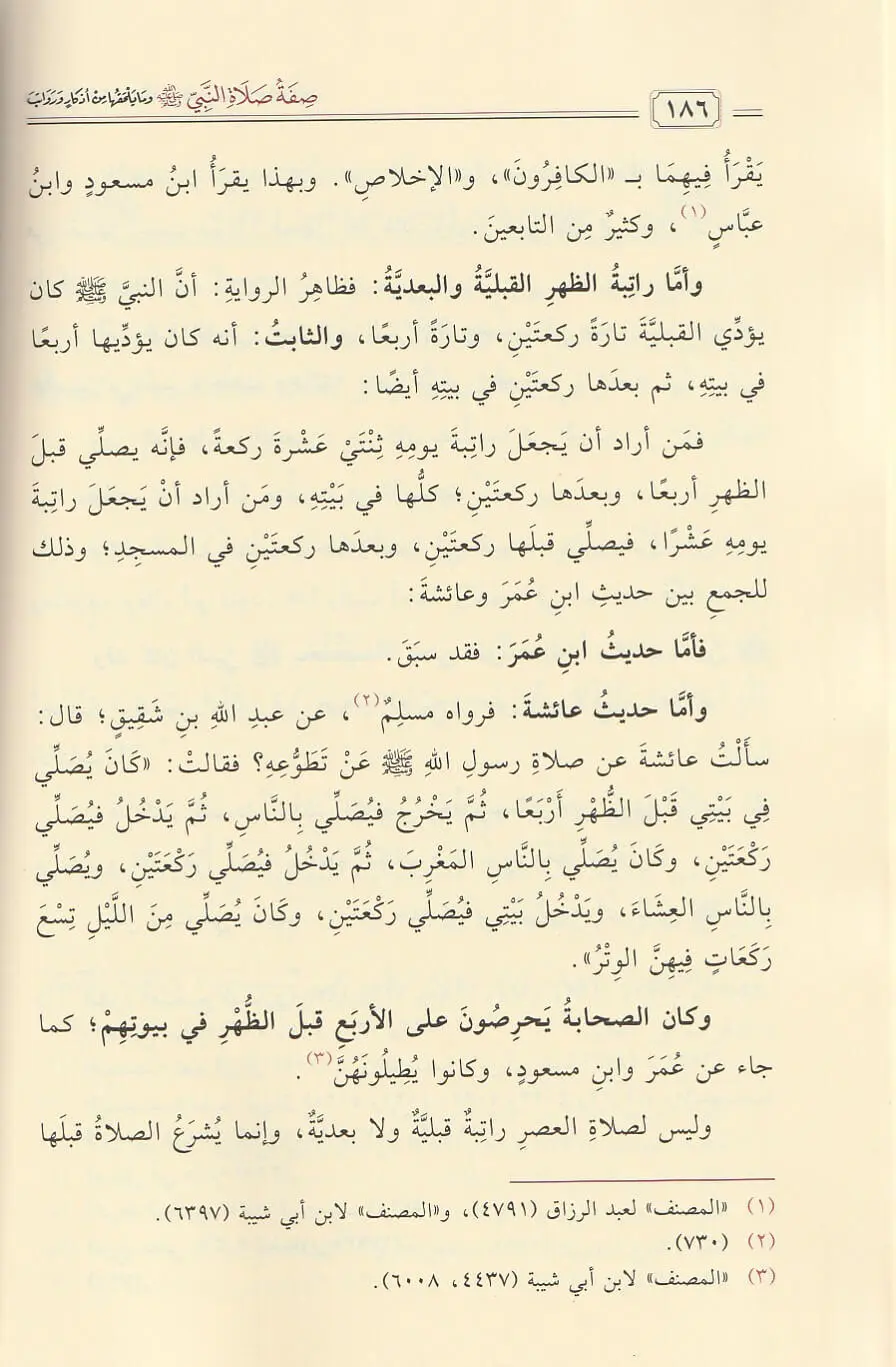 صِفَةُ صَلَاةِ النَّبِيِّ ﷺ وَمَا يَلْحَقُهَا مِنْ أَذْكَارٍ وَرَوَاتِبَ
١٨٦
يَقْرَأُ فِيهِمَا بـ «الكافِرُونَ»، و«الإخلاصِ». وبهذا يقرَأُ ابنُ مسعودٍ وابنُ
عبَّاسٍ(١)، وكثيرٌ مِن التابعينَ.
وأمَّا راتِبةُ الظهرِ القبليَّةُ والبعديَّةُ: فظاهِرُ الروايةِ: أنَّ النبيَّ ﷺ كان
يؤدِّي القبليَّةَ تارَةً ركعتَيْنِ، وتارَةً أربعًا، والثابتُ: أنه كان يؤدِّيها أربعًا
في بيتِهِ، ثم بعدَها ركعتَيْنِ في بيتِهِ أيضًا:
فمَن أراد أن يَجعَلَ راتبةَ يومِهِ ثِنْتَيْ عَشْرةَ ركعةً، فإنَّه يصلِّي قبلَ
الظهرِ أربعًا، وبعدَها ركعتَيْنِ؛ كلُّها في بَيْتِهِ، ومَن أراد أنْ يَجعَلَ راتبةَ
يومِهِ عَشْرًا، فيصلِّي قبلَها ركعتَيْنِ، وبعدَها ركعتَيْنِ في المسجِدِ؛ وذلك
للجمعِ بين حديثِ ابنِ عُمَرَ وعائشةَ:
فأمَّا حديثُ ابنِ عُمَرَ: فقد سبَقَ.
وأمَّا حديثُ عائشةَ: فرواه مسلِمٌ(٢)، عن عبدِ اللهِ بنِ شَقِيقٍ؛ قال:
سأَلْتُ عائشةَ عن صلاةِ رسولِ اللهِ ﷺ عَنْ تَطَوُّعِهِ؟ فقالتْ: «كَانَ يُصَلِّي
فِي بَيْتِي قَبْلَ الظُّهْرِ أَرْبَعًا، ثُمَّ يَخْرُجُ فيُصَلِّي بِالنَّاسِ، ثُمَّ يَدْخُلُ فيُصَلِّي
رَكْعَتَيْنِ، وكَانَ يُصَلِّي بِالنَّاسِ المَغْرِبَ، ثُمَّ يَدْخُلُ فيُصَلِّي رَكْعَتَيْنِ، ويُصَلِّي
بِالنَّاسِ العِشَاءَ، ويَدْخُلُ بَيْتِي فيُصَلِّي رَكْعَتَيْنِ، وكَانَ يُصَلِّي مِنَ اللَّيْلِ تِسْعَ
رَكَعَاتٍ فِيهِنَّ الوِتْرُ».
وكان الصحابةُ يَحرِصُونَ على الأربَعِ قبلَ الظُّهْرِ في بيوتِهِمْ؛ كما
جاء عن عُمَرَ وابنِ مسعودٍ، وكانوا يُطِيلُونَهُنَّ(٣).
وليس لصلاةِ العصرِ راتِبةٌ قبليَّةٌ ولا بعديَّةٌ، وإنما يُشرَعُ الصلاةُ قبلَها
(١) «المصنف» لعبد الرزاق (٤٧٩١)، و«المصنف» لابن أبي شيبة (٦٣٩٧).
(٢) (٧٣٠).
(٣) «المصنف» لابن أبي شيبة (٤٤٣٧، ٦٠٠٨).